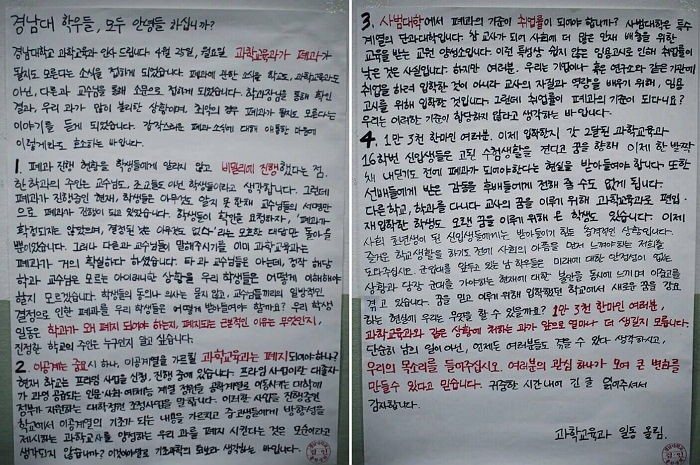 경남대 학우들, 모두 안녕들 하십니까?
경남대학교 과학교육과 인사 드립니다. 4월 25일, 월요일 과학교육과가 폐과가
될지도 모른다는 소식을 접하게 되었습니다. 폐과에 관한 소식을 학교도, 과학교육과도
아닌, 다른과 교수님을 통해 소문으로 접하게 되었습니다. 학과장님을 통해 확인
결과, 우리 과가 많이 불리한 상황이며, 최악의 경우 폐과가 될지도 모른다는
이야기를 듣게 되었습니다. 갑작스러운 폐과 소식에 대해 애통한 마음에
이렇게라도 호소하는 바입니다.
1. 폐과 진행 현황을 학생들에게 알리지 않고 비밀리에 진행했다는 점.
한 학과의 주인는 교수님도, 조교들도 아닌 학생들이라고 생각합니다. 그런데
폐과가 진행중인 현재, 학생들은 아무것도 알지 못한채 교수님들의 서명만
으로 폐과가 진행이 되고 있었습니다. 학생들이 확인을 요청하자, '폐과가
확정되지는 않았으며, 결정된 것은 아무것도 없다'라는 모호한 대답만 돌아올
뿐이었습니다. 그러나 다른과 교수님들이 말해주시기를 이미 과학교육과는
폐과가 거의 확실하다 하셨습니다. 타 과 교수님들은 아는데, 정작 해당
학과 교수님은 모르는 아이러니한 상황을 우리 학생들은 어떻게 이해해야
할지 모르겠습니다. 학생들의 동의나 의사는 묻지 않고, 교수님들끼리의 일방적인
결정으로 인한 폐과를 우리 학생들은 어떻게 받아들여야 할까요? 우리 학생
일동은 학과가 왜 폐지 되어야 하는지, 폐지되는 근본적인 이유는 무엇인지,
진정한 학교의 주인은 누구인지 알고 싶습니다.
2. 이공계는 중요시 하나, 이공계열을 가르칠 과학교육과는 폐지되어야 하나?
현재 학교는 프라임 사업을 신청, 진행 중에 있습니다. 프라임 사업이란 대졸자
가 과잉 공급되는 인문·사회·예체능 계열 정원을 공학계열로 이동시키는 대학에
정부가 지원하는 대학정원 조정사업을 말합니다. 이러한 사업을 진행중인
학교에서 이공계열의 기초가 되는 내용을 가르치고 중고생들에게 방향성을
제시하는 과학교사를 양성하는 우리 과를 폐지 시킨다는 것은 모순이라고
생각되지 않습니까? 이것이야말로 기초과학의 퇴보라 생각하는 바입니다.
3. 사범대학에서 폐과의 기준이 취업률이 되어야 합니까? 사범대학은 특수
계열의 단과대학입니다. 참 교사가 되어 사회에 더 많은 인재 배출을 위한
교육을 받는 교원 양성소입니다. 이런 특성상 쉽지 않은 임용고시로 인해 취업률이
낮은 것은 사실입니다. 하지만 여러분. 우리는 기업이나 혹은 연구소와 같은 기관에
취업을 하려 입학한 것이 아니라 교사의 자질과 역량을 배우기 위해, 임용
고시를 위해 입학한 것입니다. 그런데 취업률이 폐과의 기준이 되다니요?
우리는 이러한 기준이 합당하지 않다라고 생각하는 바 입니다.
4. 1만 3천 한마인 여러분. 이제 입학한지 갓 2달된 과학교육과
16학번 신입생들은 고된 수험생활을 견디고 꿈을 향해 이제 한 발짝
채 내딛기도 전에 폐과가 되어야한다는 현실을 받아들여야 합니다. 또한
선배들에게 받은 감동을 후배들에게 전해 줄 수도 없게 됩니다.
다른 학교, 학과를 다니다 교사의 꿈을 이루기 위해 과학교육과로 편입·
재입학한 학생들도 오랜 꿈을 이루기 위해 온 학생도 있습니다. 이제
사회 초년생이 된 신입생들에게는 받아들이기 힘든 충격적인 상황입니다.
즐거운 학교생활을 하기도 전에 사회의 아픔을 먼저 느껴야하는 저희를
도와주십시오. 군입대를 앞두고 있는 남 학우들은 미래에 대한 안정성이 없는
상황과 당장 군대를 가야하는 현재에 대한 불안을 동시에 느끼며 이중고를
겪고 있습니다. 꿈을 믿고 여기 위해 입학했던 학교에서 새로운 꿈을 강요
하는 현실에 우리는 무엇을 할 수 있을까요? 1만 3천 한마인 여러분,
과학교육과와 같은 상황에 처하는 과가 앞으로 얼마나 더 생길지 모릅니다.
단순히 남의 일이 아닌, 언제든 여러분들도 겪을 수 있다 생각하시고,
우리의 목소리를 들어주십시오. 여러분의 관심 하나가 모여 큰 변화를
만들수 있다고 믿습니다. 귀중한 시간 내어 긴 글 읽어주셔서
감사합니다.
과학교육과 일동 올림.